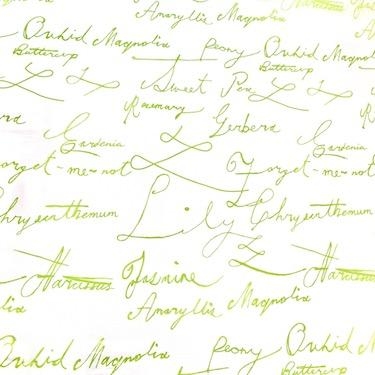 Narcissus
Amaryllis Magnolia
Orchid Magnolia Peony Orchid Magnolia
Buttercup Buttercup
Sweet Pea
Rosemary
Gerbera
Gardenia Gardenia
Forget-me-not Forget-me-not
Chrysanthemum Lily Chrysanthemum
Narcissus Jasmine Narcissus
Amaryllis Magnolia
Orchid Magnolia Peony Orchid
Buttercup